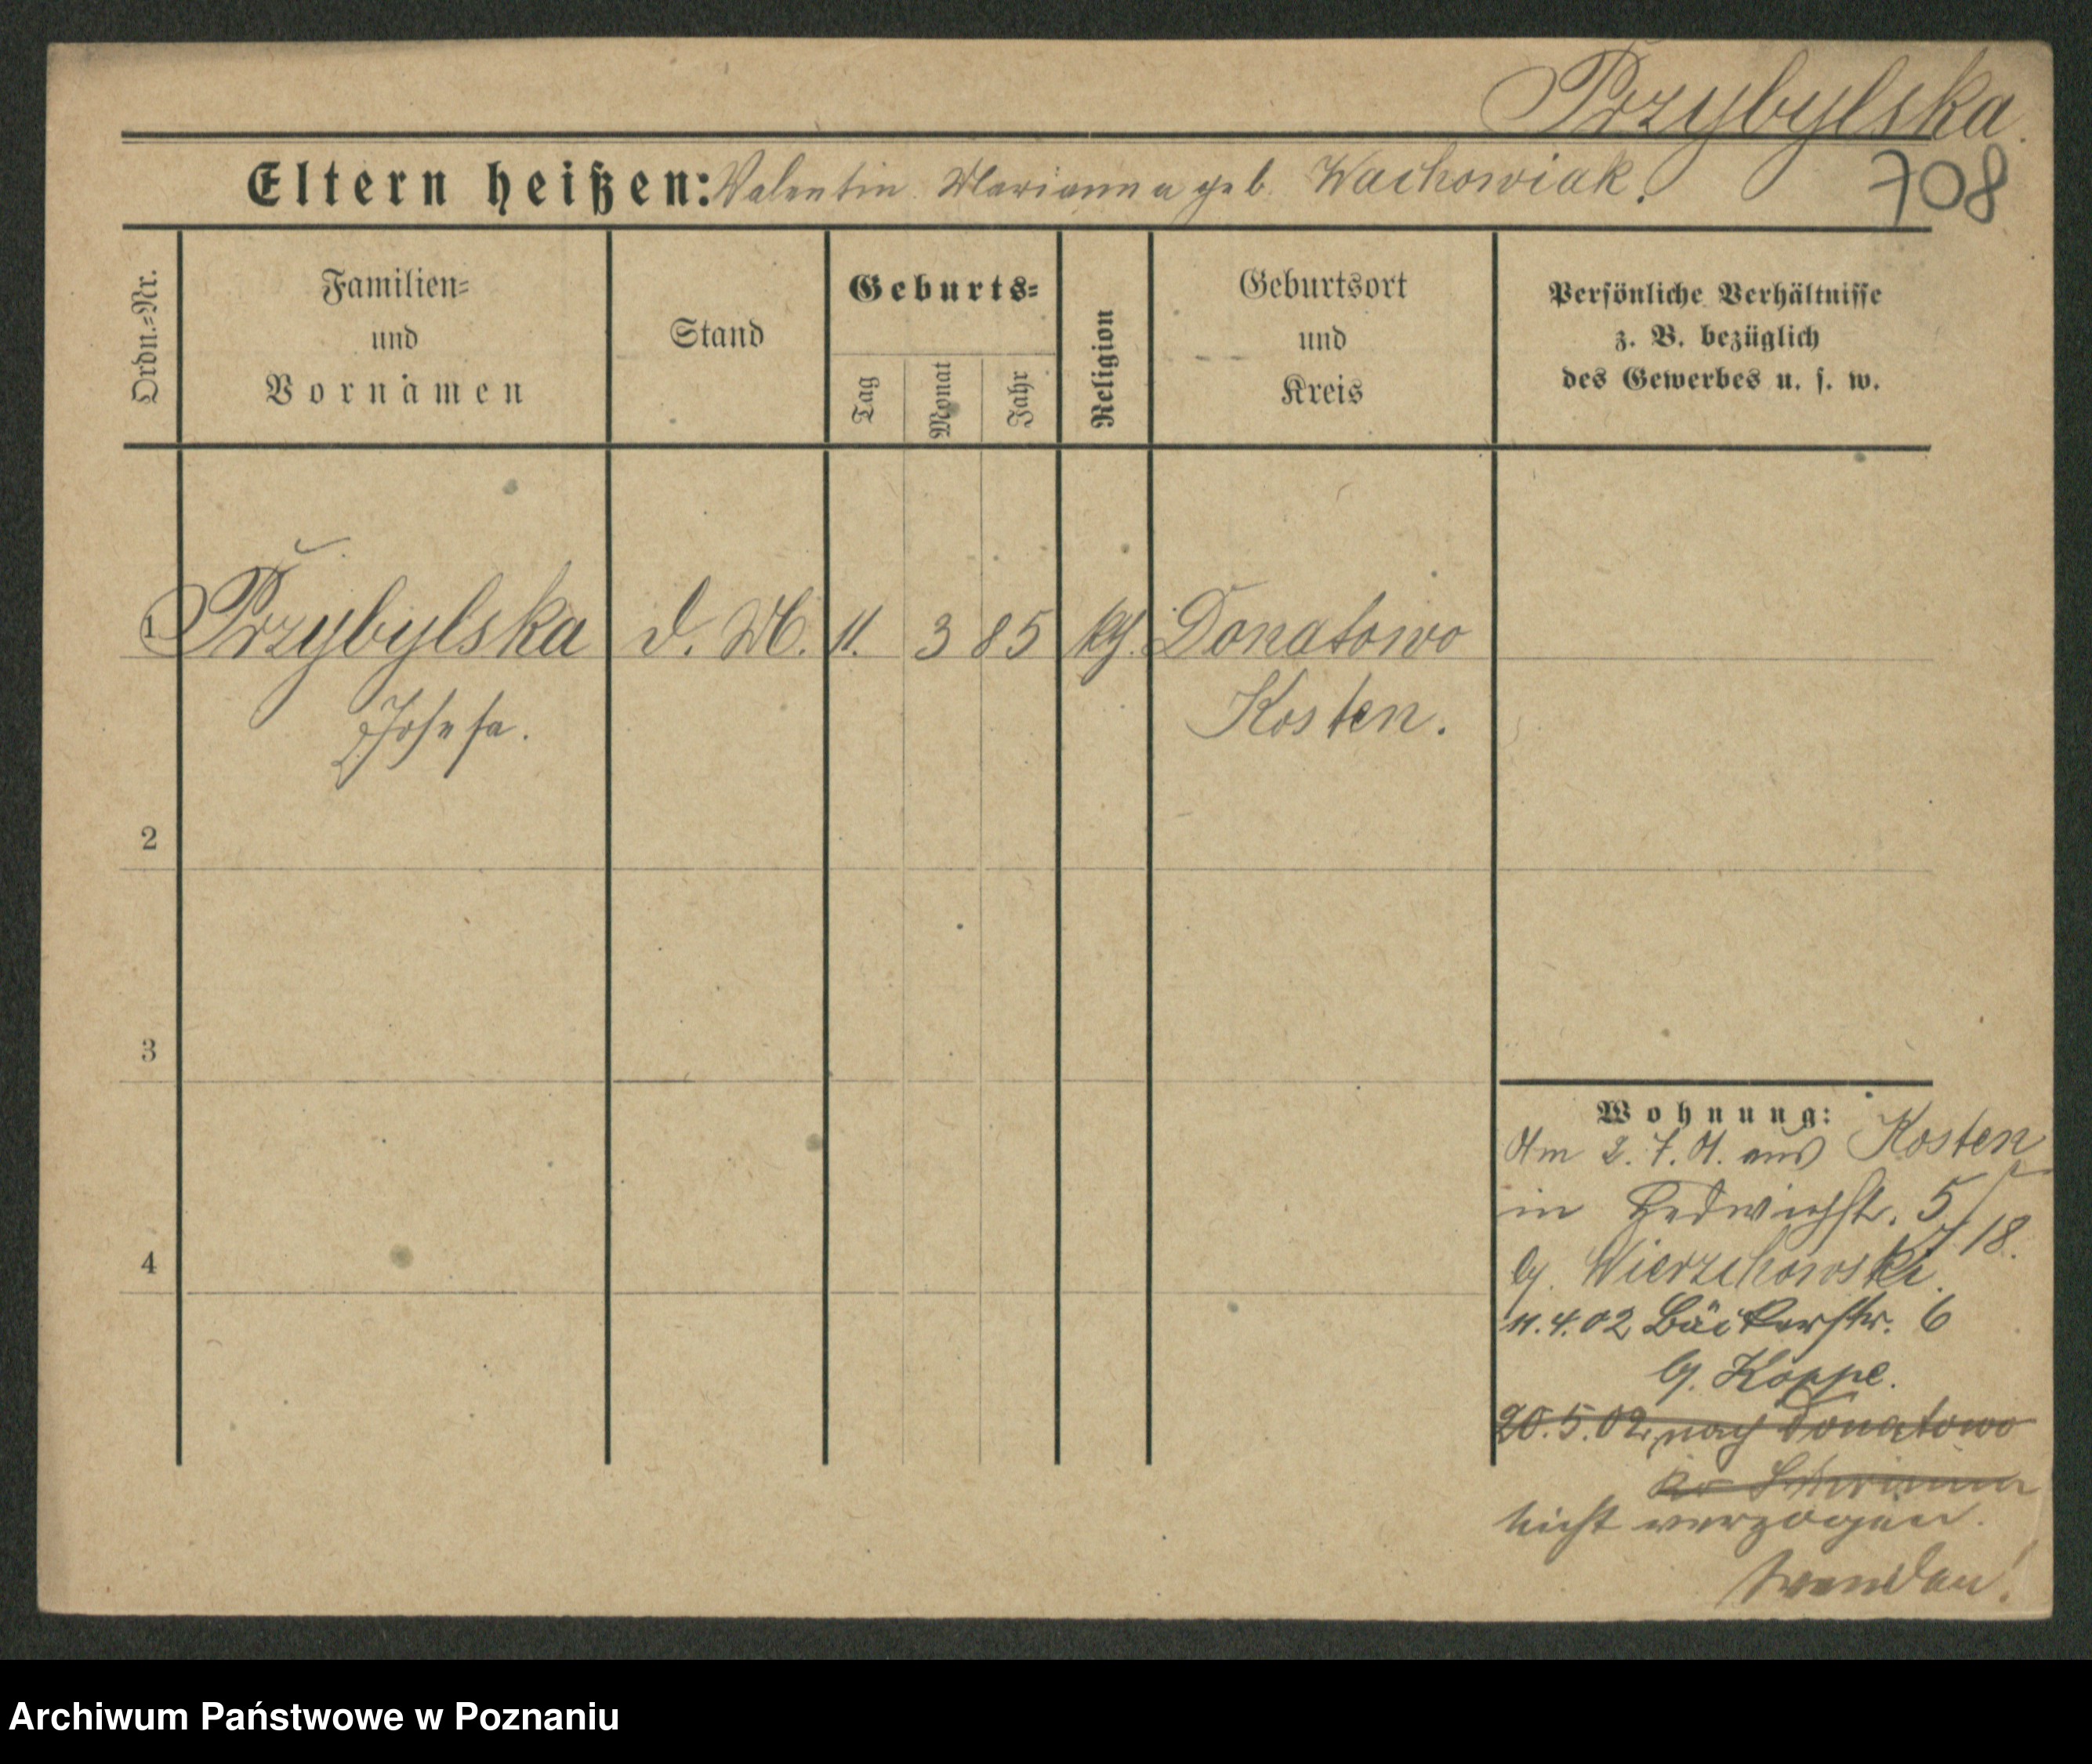 Przybylska.
Eltern heißen: Valentin Marianna geb. Wachowiak.
708
Ordn.-Nr.
Familien-
und
Vornamen
Stand
Geburts-
Tag
Monat
Jahr
Religion
Geburtsort
und
Kreis
Persönliche Verhältnisse
z. B. bezüglich
des Gewerbes u. s. w.
1 Przybylska d. M. 11. 3 85 kath. Donatowo
Josefa. Kosten.
2
3
4
Wohnung:
Am 2. 7. 01. aus Kosten
in Hedwigstr. 5
18.
b. Wierzchowski.
11.4.02 Bäckerstr. 6
b. Koppe.
20.5.02. nach Donatowo
Kr.
nicht verzogen.
wenden!
Archiwum Państwowe w Poznaniu